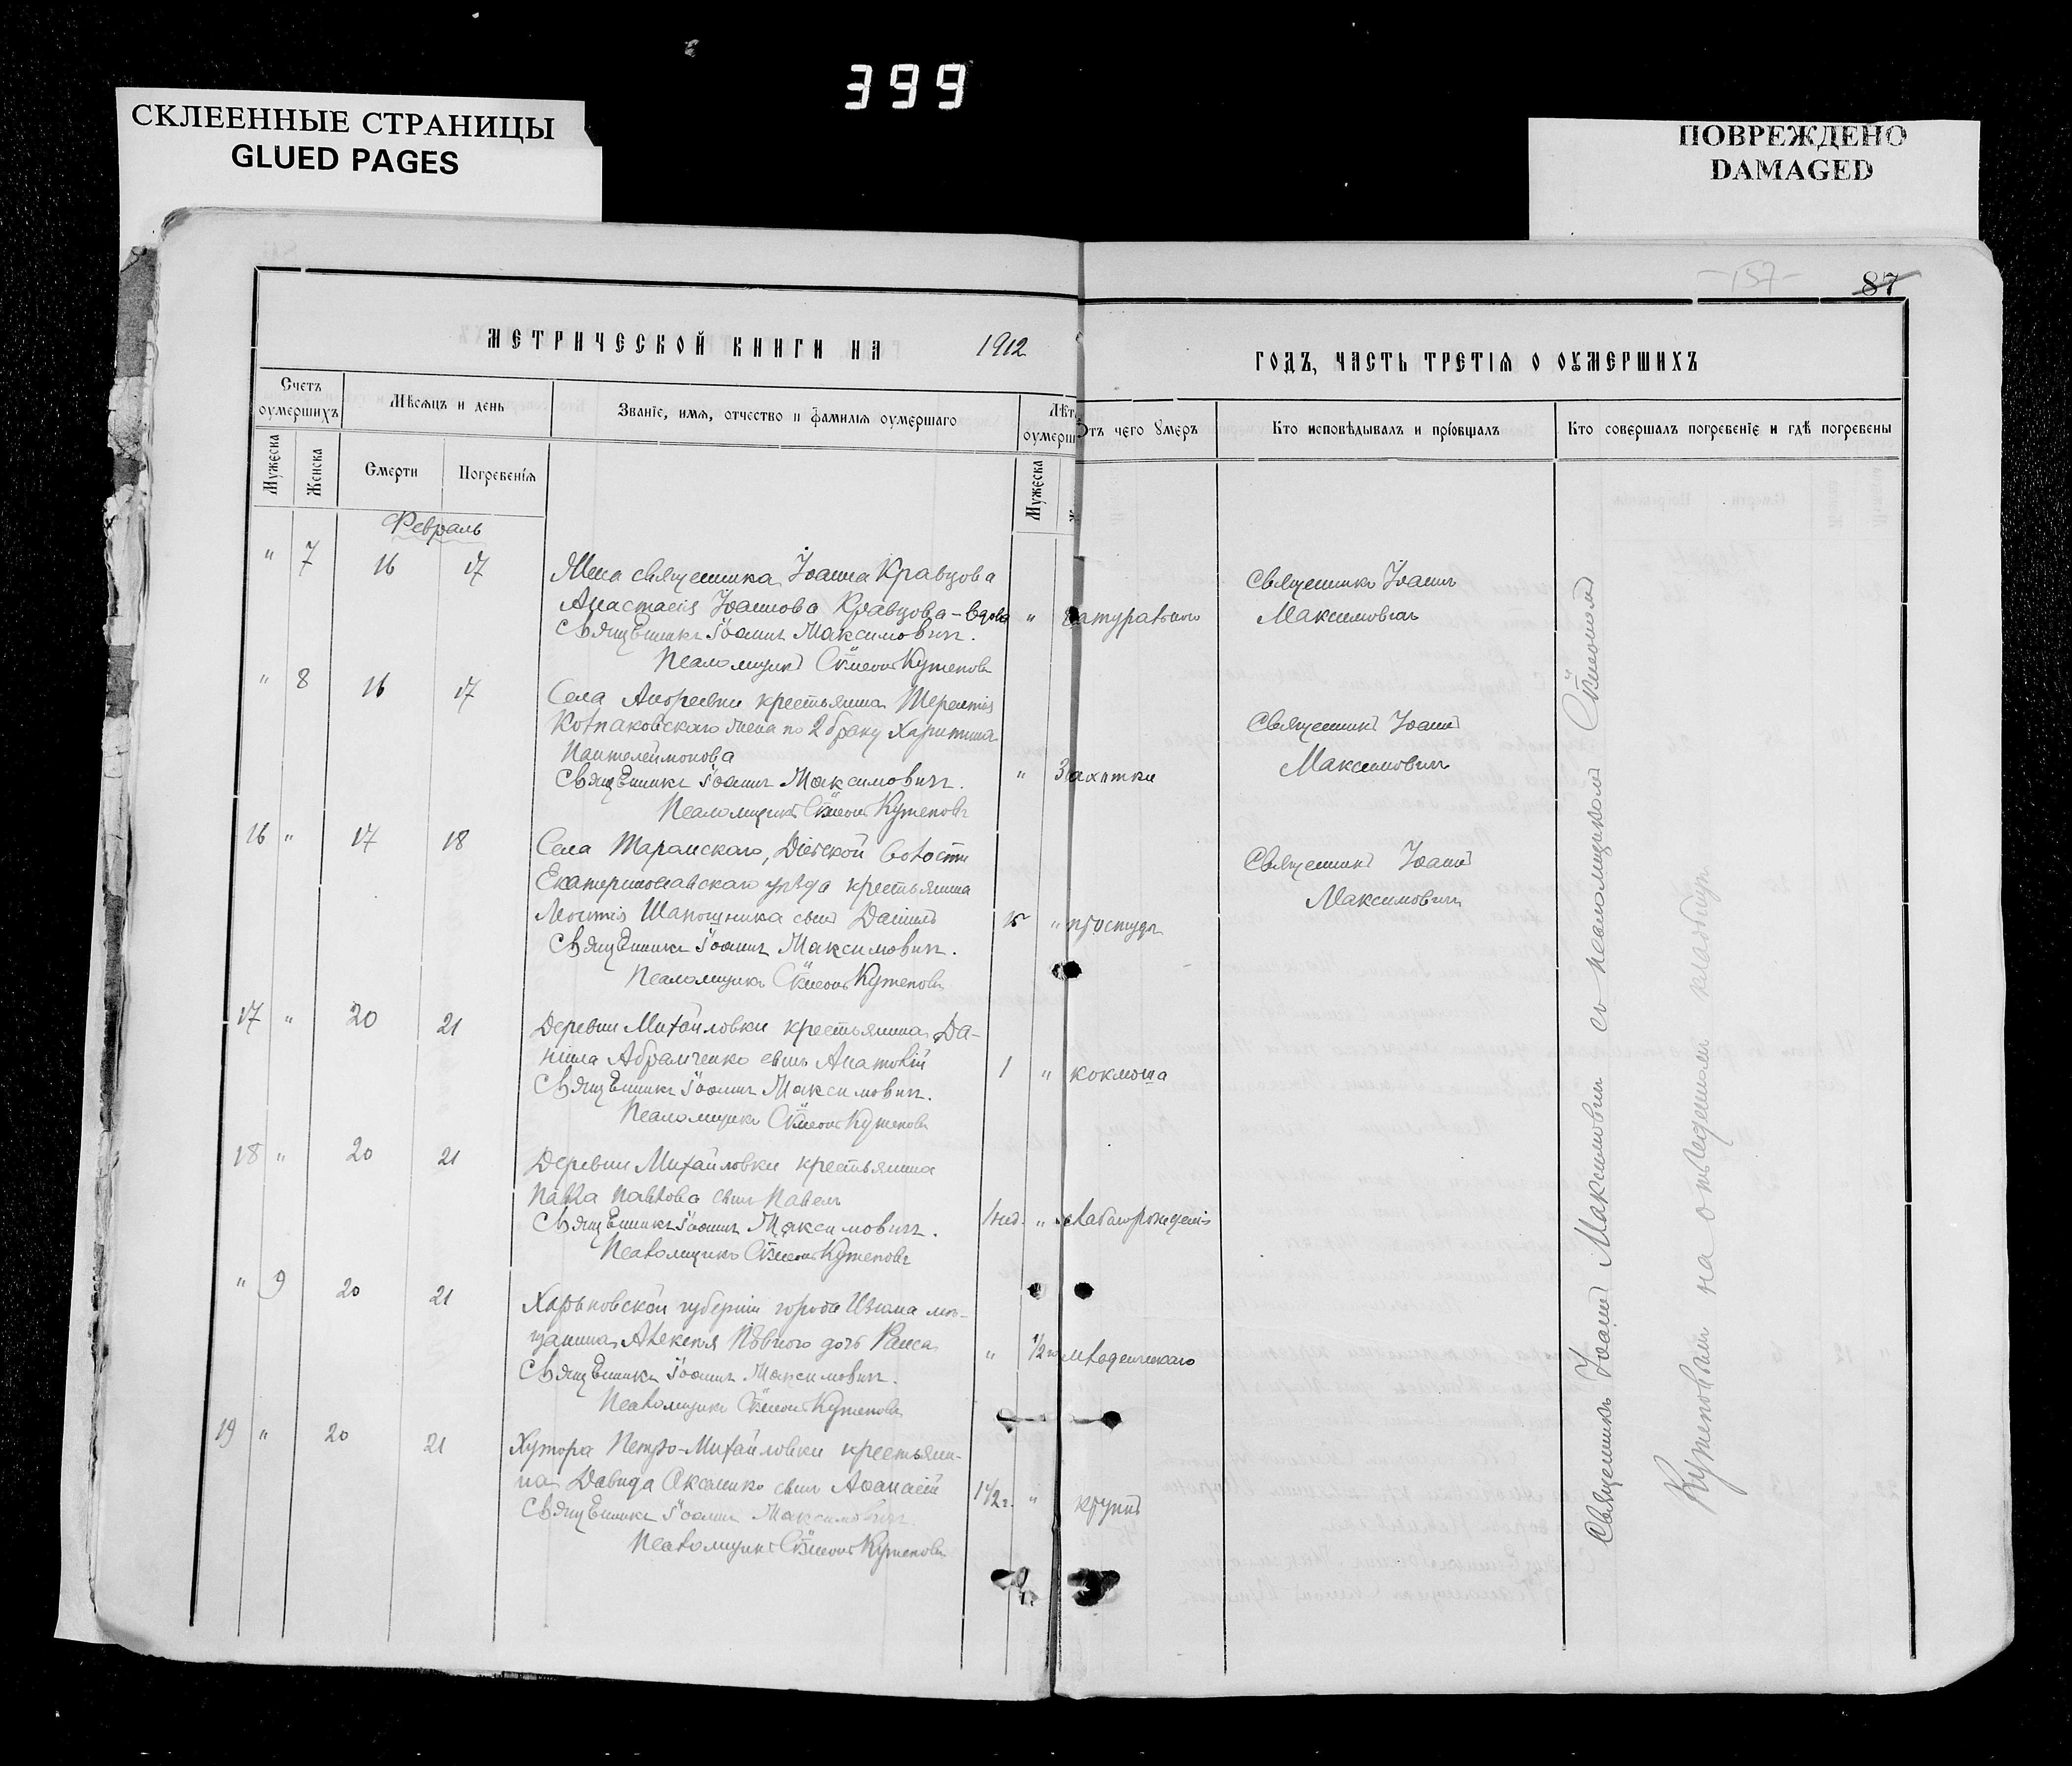 399
СКЛЕЕННЫЕ СТРАНИЦЫ
GLUED PAGES
ПОВРЕЖДЕНО
DAMAGED
157
87
МЕТРИЧЕСКОЙ КНИГИ НА 1912
ГОДЪ, ЧАСТЬ ТРЕТІЯ О ОУМЕРШИХЪ
Счетъ оумершихъ
Мѣсяцъ и день
Званіе, имя, отчество и фамилія оумершаго
Лѣт оумерш
Отъ чего Умеръ
Кто исповѣдывалъ и пріобщалъ
Кто совершалъ погребеніе и гдѣ погребены
Мужеска
Женска
Смерти
Погребенія
Мужеска
Февраль
" 7 16 17
Жена священника Іоанна Кравцова
Анастасія Іоаннова Кравцова - вдова
Священникъ Іоаннъ Максимовичъ.
Псаломщикъ Сѵмеонъ Кутеповъ
"
Священникъ Іоаннъ
Максимовичъ
" 8 16 17
Села Андреевки крестьянина Терентія
Колпаковскаго жена по 2 браку Харитина
Пантелеймонова
Священникъ Іоаннъ Максимовичъ.
Псаломщикъ Сѵмеонъ Кутеповъ
" Чахотки
Священникъ Іоаннъ
Максимовичъ
16 " 17 18
Села Тарамскаго, Діевской волости
Екатеринославскаго уѣзда крестьянина
Шапошника сынъ Даніилъ
Священникъ Іоаннъ Максимовичъ.
Псаломщикъ Сѵмеонъ Кутеповъ
" простуды
Священникъ Іоаннъ
Максимовичъ
17 " 20 21
Деревни Михайловки крестьянина Да-
ніила Абрамченко сынъ Анатолій
Священникъ Іоаннъ Максимовичъ.
Псаломщикъ Сѵмеонъ Кутеповъ
1 " коклюша
18 " 20 21
Деревни Михайловки крестьянина
Павла Павлова сынъ Павелъ
Священникъ Іоаннъ Максимовичъ.
Псаломщикъ Сѵмеонъ Кутеповъ
1 нед. " слабаго рожденія
" 9 20 21
Харьковской губерніи города Изюма мѣ-
щанина Алексѣя дочь Раиса
Священникъ Іоаннъ Максимовичъ.
Псаломщикъ Сѵмеонъ Кутеповъ
" 1/2 младенческаго
19 " 20 21
Хутора Петро-Михайловки крестьяни-
на Давида сынъ Аѳанасій
Священникъ Іоаннъ Максимовичъ
Псаломщикъ Сѵмеонъ Кутеповъ
1 1/2 г. " крупъ
Священникъ Іоаннъ Максимовичъ съ псаломщикомъ Сѵмеономъ
Кутеповымъ на кладбищѣ